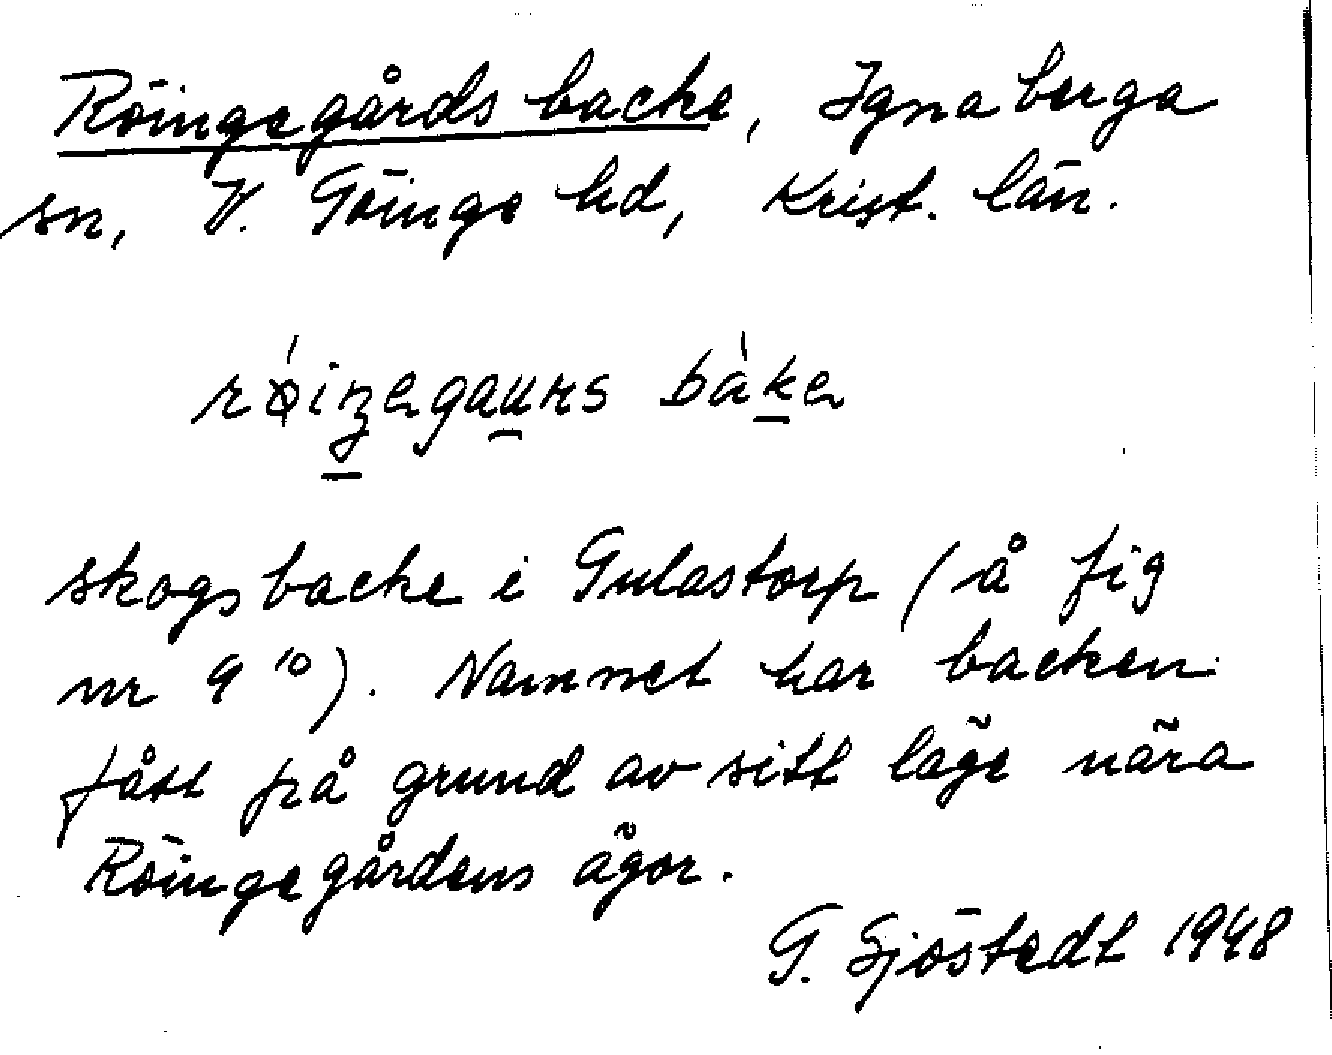 Röingegårds backe, Ignaberga
sn, V. Göinge hd, Krist. län.
røiŋegaurs bàke
skogsbacke i Gulastorp (å fig
nr 9¹⁰). Namnet har backen
fått på grund av sitt läge nära
Röingegårdens ägor.
G. Sjöstedt 1948